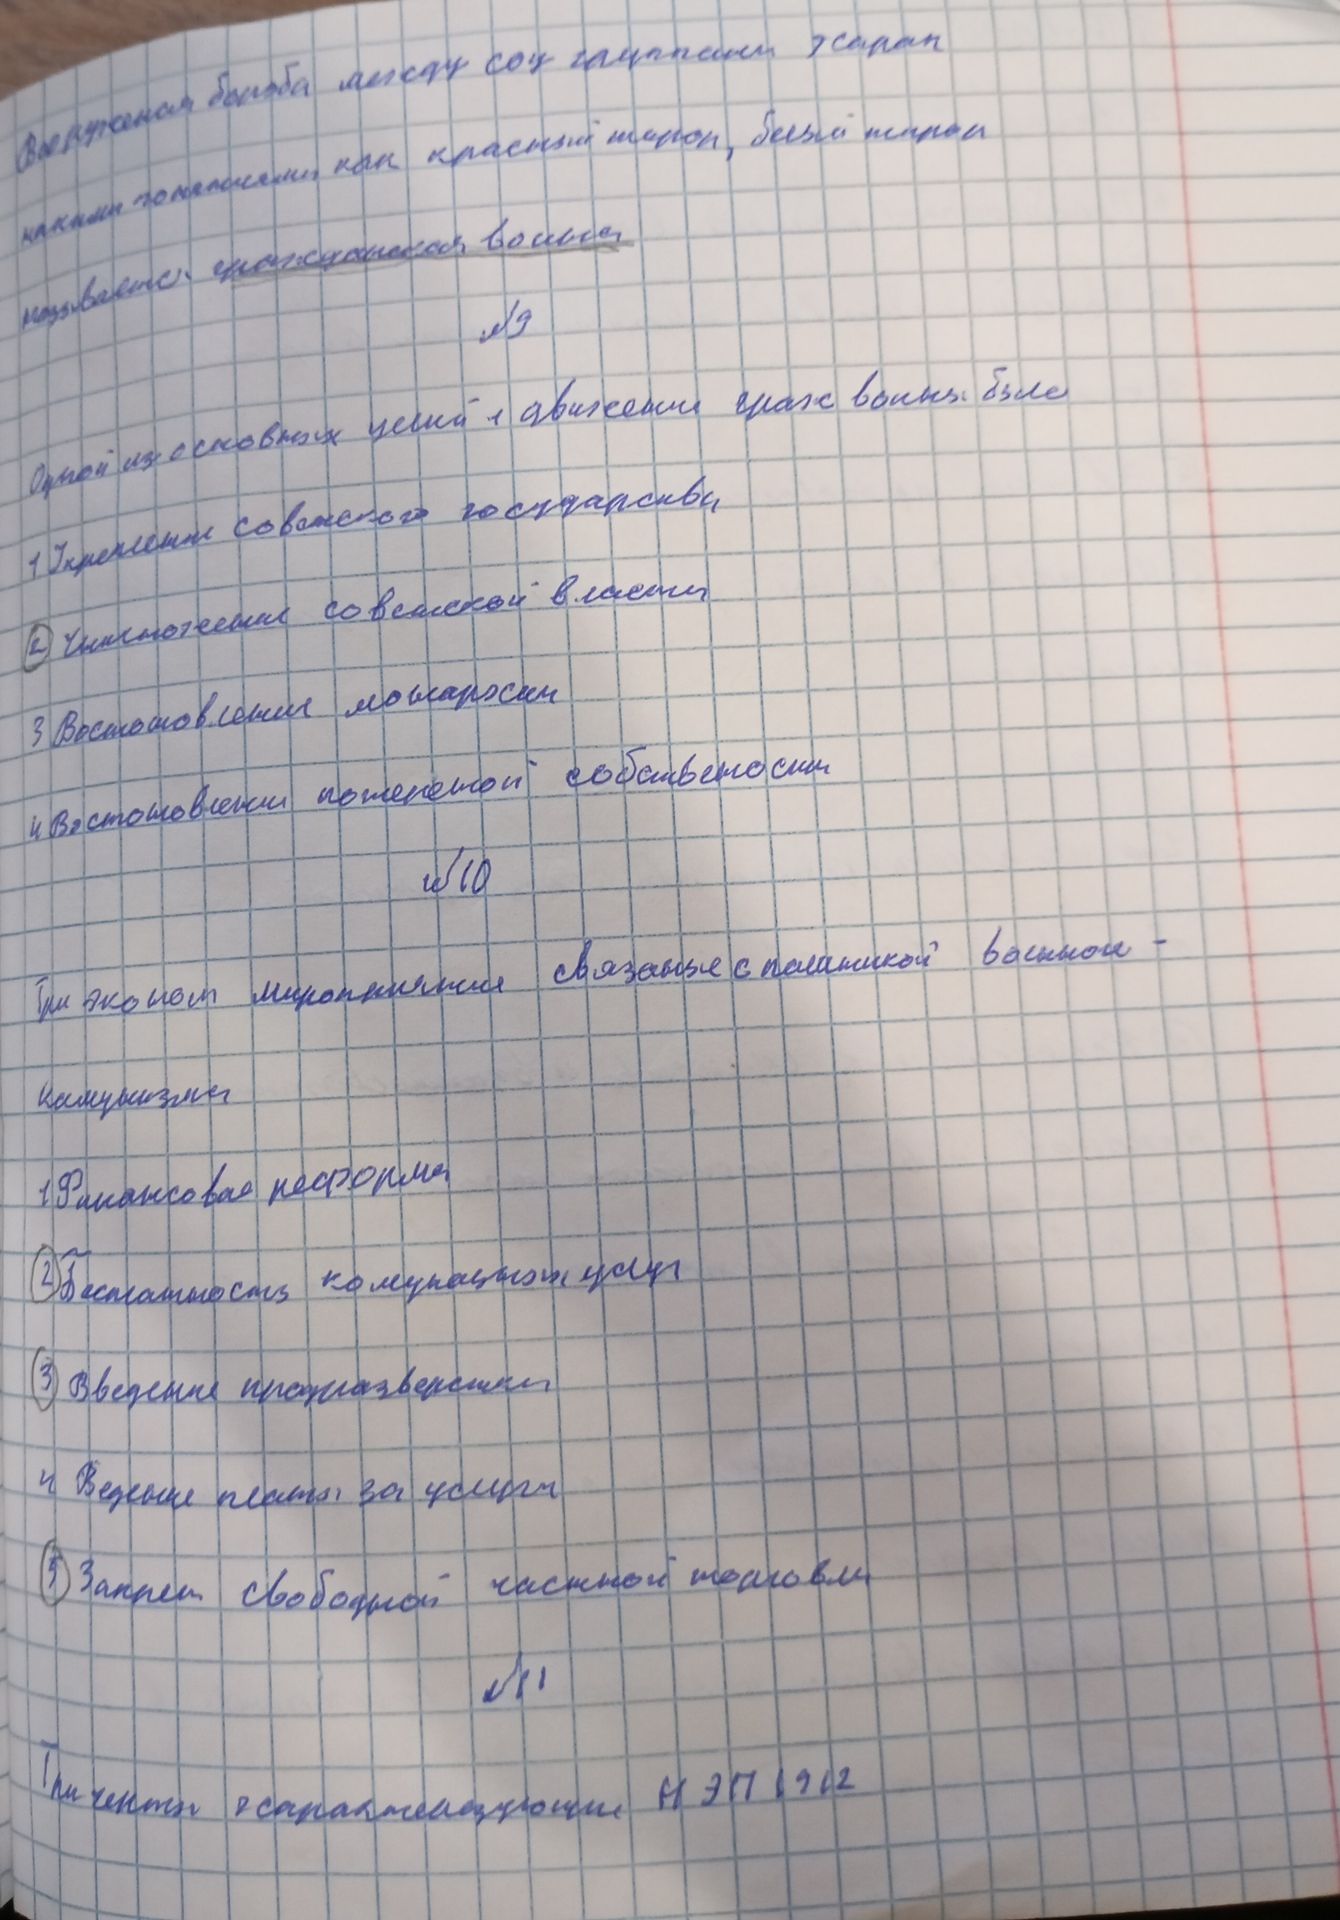 Вооруженая борьба между соц группами харак
такими понятиями как красный терор, белый терор
называетс. гражданская война
№9
Одной из основных целий 1 движении граж войны было
1 Укрепление советского государства
2 Уничтожение советской власти
3 Востоновление монархии
4 Востоновлении помещечей собствености
№10
Три эконом мироприятия связаные с политикой военной -
камунизма
1 Финансовая реформа
2 Бесплатность комунальных услуг
3 Введение продразверстки
4 Ведение платы за услуги
5 Запрет свободной частной торговли
№11
Три черты характеризующие НЭП 1912